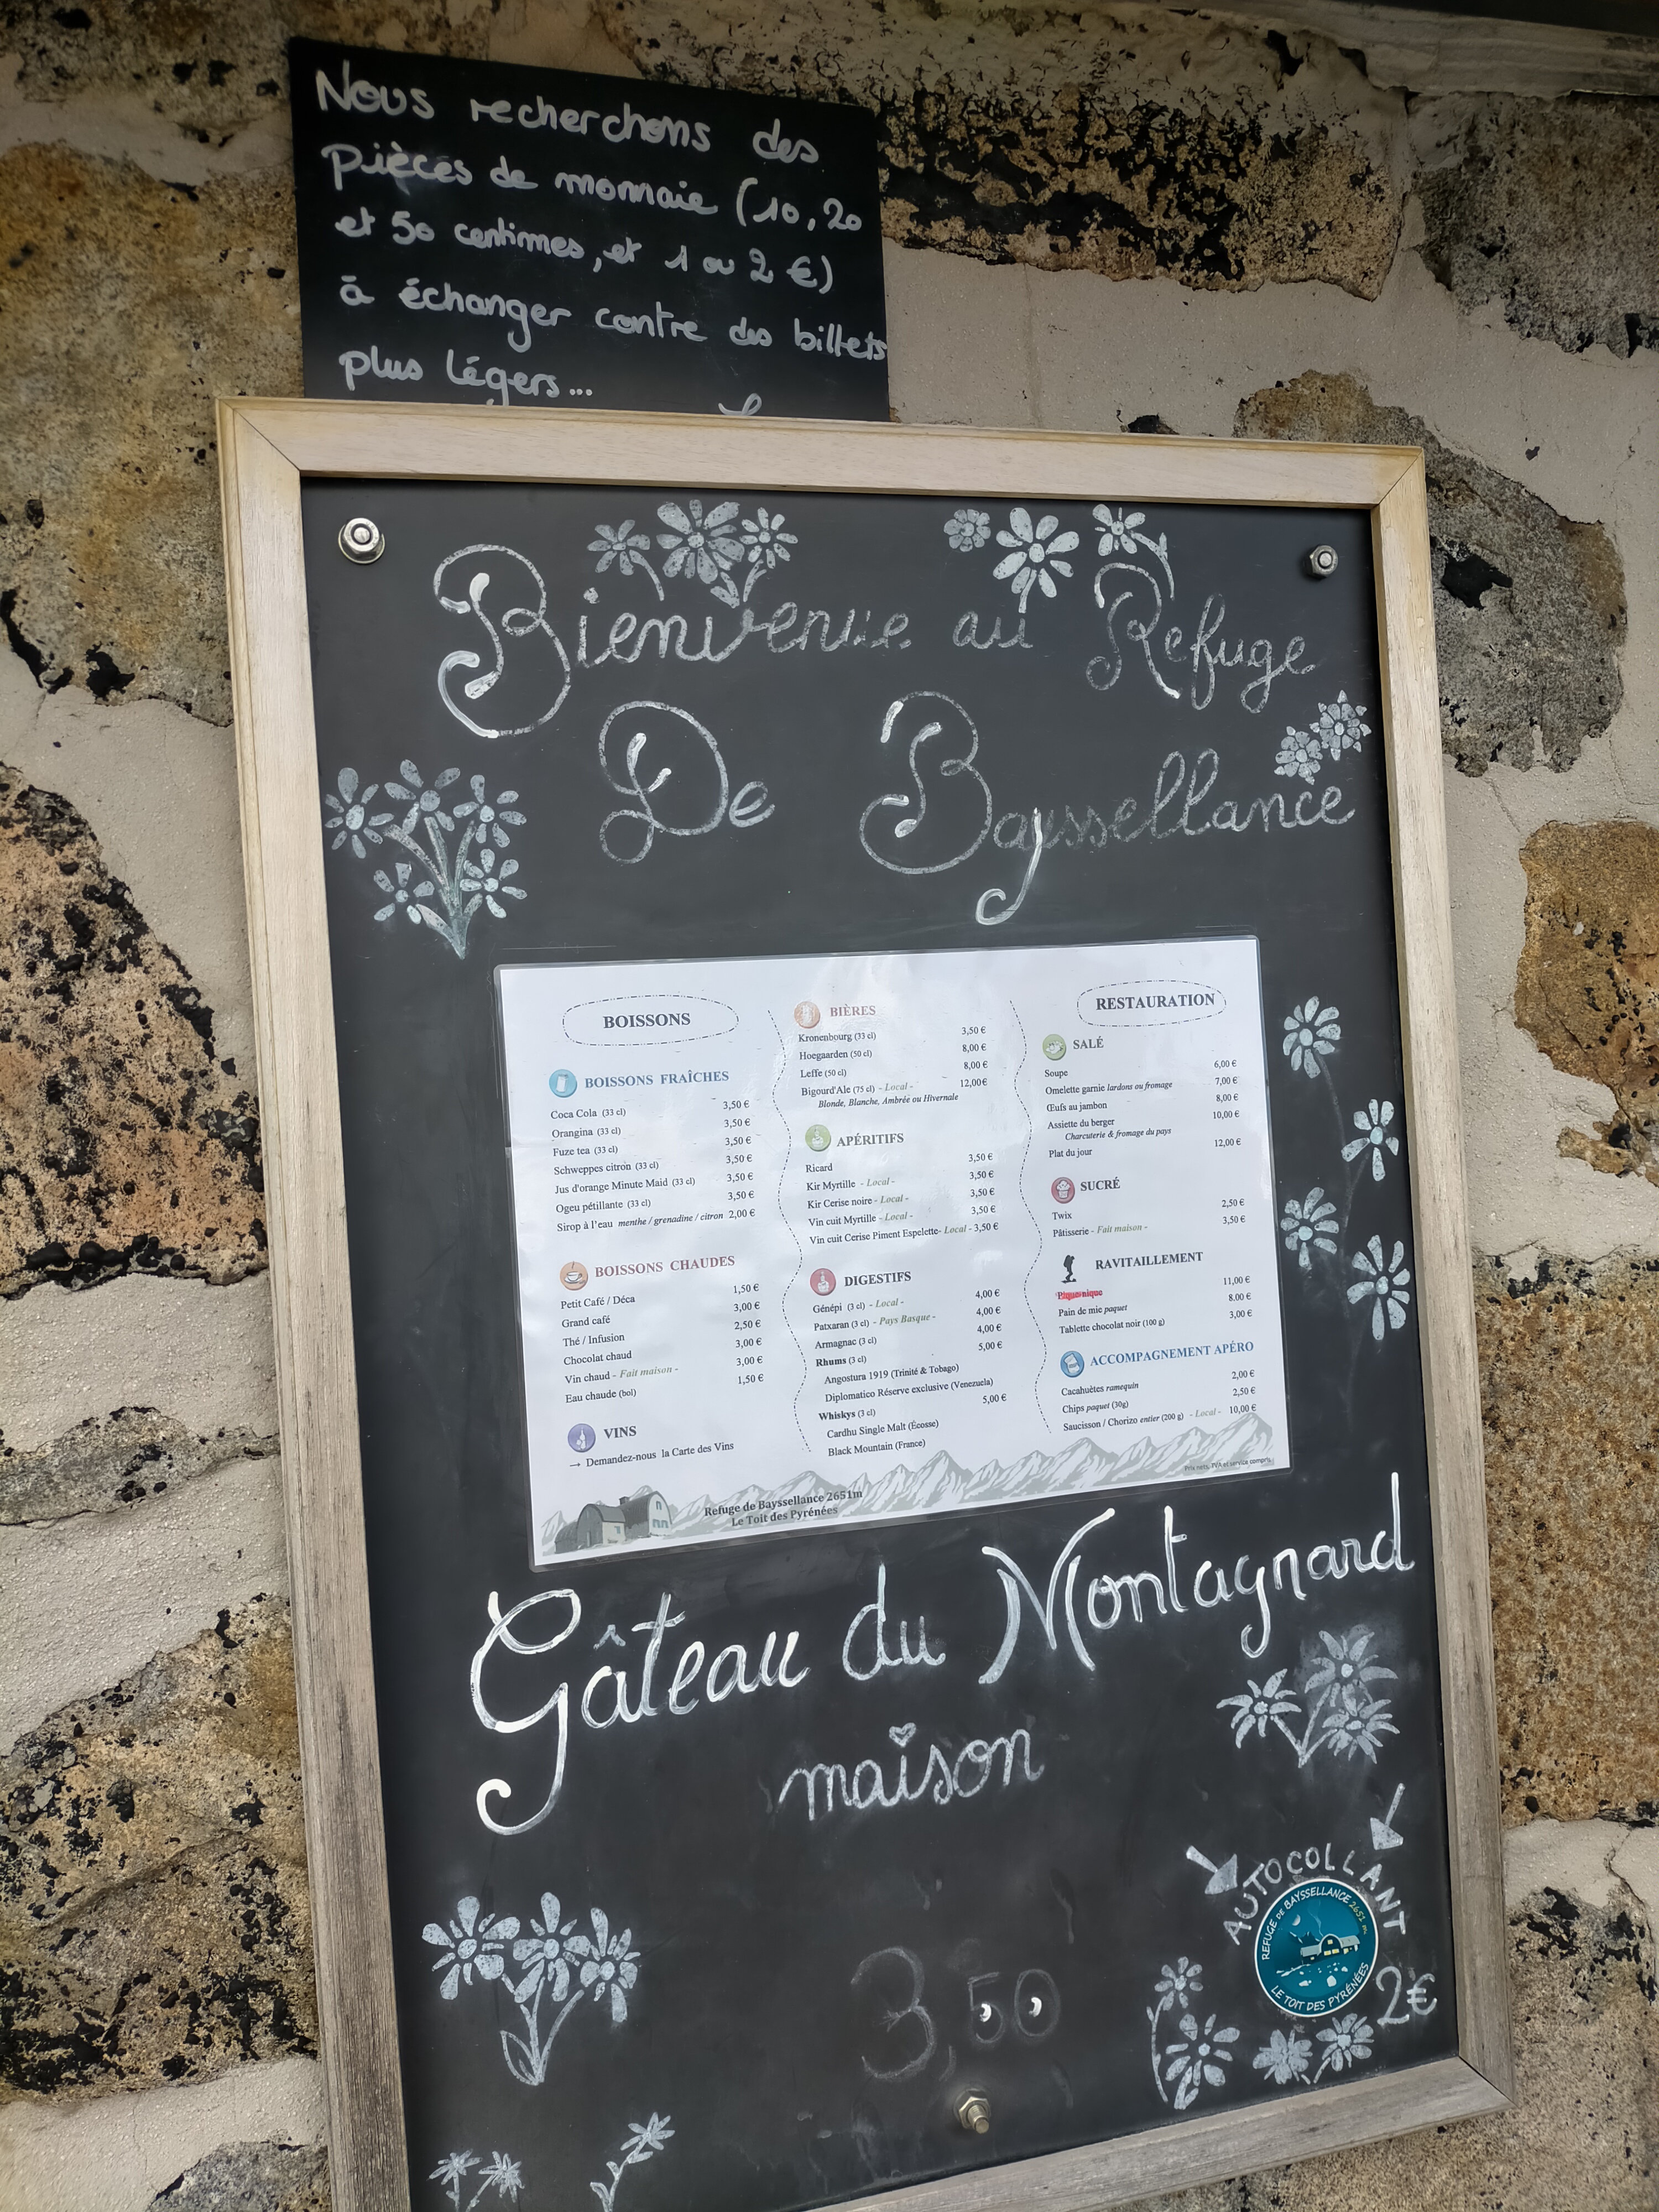 Nous recherchons des
pièces de monnaie (10, 20
et 50 centimes, et 1 ou 2 €)
à échanger contre des billets
plus légers...
Bienvenue au Refuge
De Bayssellance
BOISSONS
BOISSONS FRAÎCHES
Coca Cola (33 cl) 3,50 €
Orangina (33 cl) 3,50 €
Fuze tea (33 cl) 3,50 €
Schweppes citron (33 cl) 3,50 €
Jus d'orange Minute Maid (33 cl) 3,50 €
Ogeu pétillante (33 cl) 3,50 €
Sirop à l'eau menthe / grenadine / citron 2,00 €
BOISSONS CHAUDES
Petit Café / Déca 1,50 €
Grand café 3,00 €
Thé / Infusion 2,50 €
Chocolat chaud 3,00 €
Vin chaud - Fait maison - 3,00 €
Eau chaude (bol) 1,50 €
VINS
→ Demandez-nous la Carte des Vins
BIÈRES
Kronenbourg (33 cl) 3,50 €
Hoegaarden (50 cl) 8,00 €
Leffe (50 cl) 8,00 €
Bigourd'Ale (75 cl) - Local - 12,00€
Blonde, Blanche, Ambrée ou Hivernale
APÉRITIFS
Ricard 3,50 €
Kir Myrtille - Local - 3,50 €
Kir Cerise noire - Local - 3,50 €
Vin cuit Myrtille - Local - 3,50 €
Vin cuit Cerise Piment Espelette- Local - 3,50 €
DIGESTIFS
Génépi (3 cl) - Local - 4,00 €
Patxaran (3 cl) - Pays Basque - 4,00 €
Armagnac (3 cl) 4,00 €
Rhums (3 cl) 5,00 €
Angostura 1919 (Trinité & Tobago)
Diplomatico Réserve exclusive (Venezuela)
Whiskys (3 cl) 5,00 €
Cardhu Single Malt (Écosse)
Black Mountain (France)
RESTAURATION
SALÉ
Soupe 6,00 €
Omelette garnie lardons ou fromage 7,00 €
Œufs au jambon 8,00 €
Assiette du berger 10,00 €
Charcuterie & fromage du pays
Plat du jour 12,00 €
SUCRÉ
Twix 2,50 €
Pâtisserie - Fait maison - 3,50 €
RAVITAILLEMENT
Pique-nique 11,00 €
Pain de mie paquet 8,00 €
Tablette chocolat noir (100 g) 3,00 €
ACCOMPAGNEMENT APÉRO
Cacahuètes ramequin 2,00 €
Chips paquet (30g) 2,50 €
Saucisson / Chorizo entier (200 g) - Local - 10,00 €
Prix nets, TVA et service compris.
Refuge de Bayssellance 2651m
Le Toit des Pyrénées
Gâteau du Montagnard
maison
3,50
AUTOCOLLANT
REFUGE DE BAYSSELLANCE 2651 m
LE TOIT DES PYRÉNÉES
2€